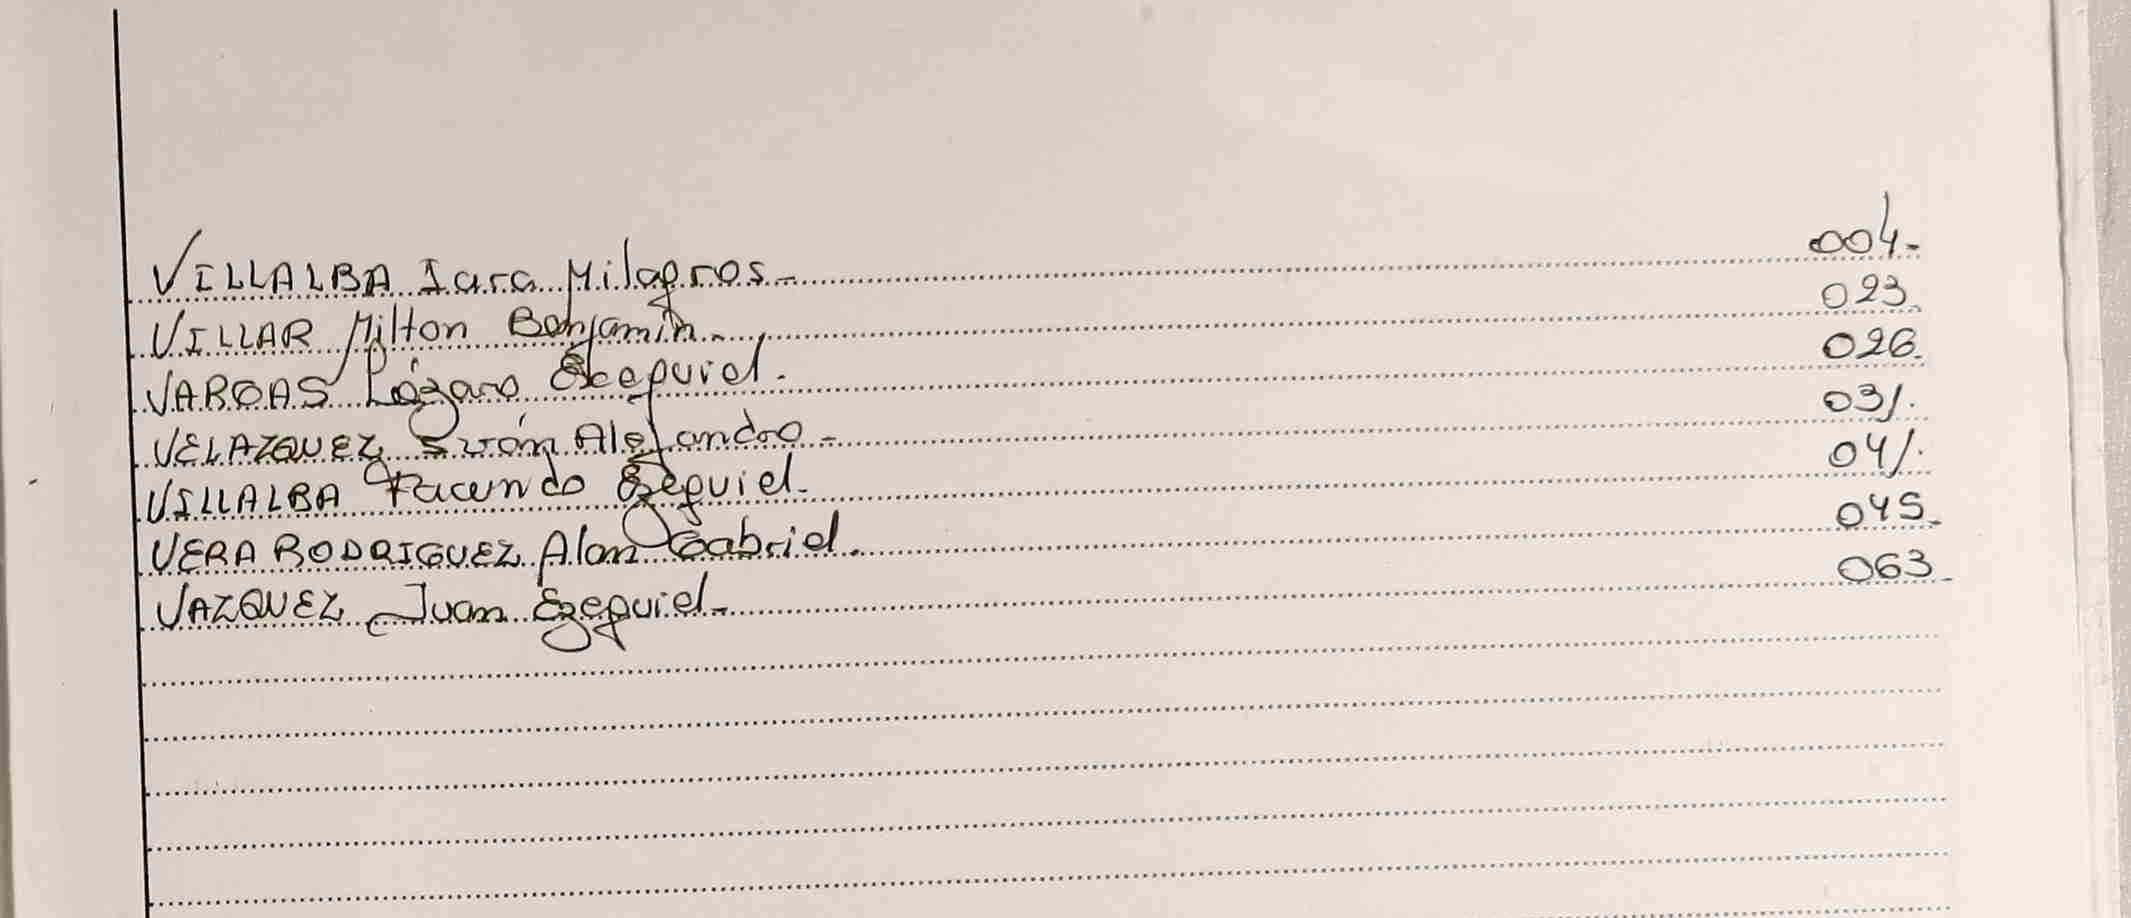 VILLALBA Iara Milagros.- 004.-
VILLAR Milton Benjamin.- 023.
VARGAS Lázaro Ezequiel.- 026.
VELAZQUEZ Iván Alejandro.- 031.
VILLALBA Facundo Ezequiel.- 041.
VERA RODRIGUEZ Alan Gabriel.- 045.
VAZQUEZ Juan Ezequiel.- 063.